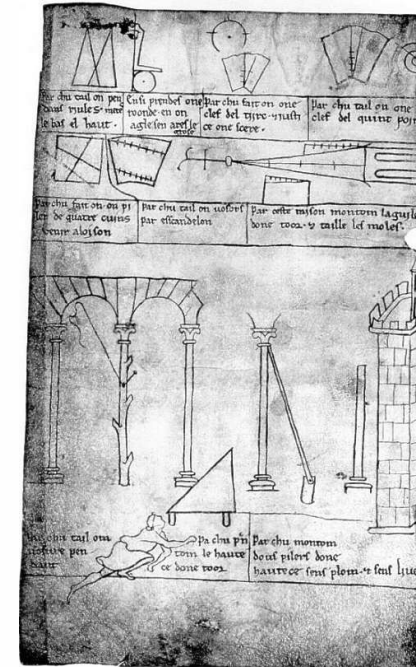 Par chu tail on pen
dans riules
le bas el haut.
Ensi prendes one
roonde en on
agle sen ares le
grose
Par chu fait on one
clef del tirc
ce one scere.
Par chu tail on one
clef del quint poin
Par chu fait on on pi
ler de quatre cuins
venir a loison
Par chu tail on vosors
par escandelon
Par ceste raison montom laguile
done toor. & taille les moles.
Par chu tail om
vosure pen
dant
Pa chu pn
tom le haute
ce done toor
Par chu montom
dous pilers done
hautece sens plom & sens live